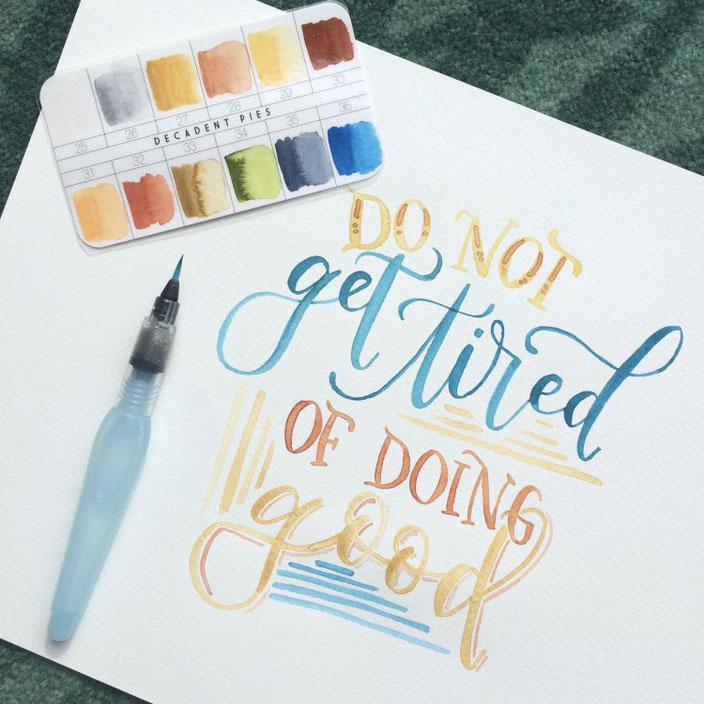 25 26 27 28 29 30
DECADENT PIES
31 32 33 34 35 36
DO NOT
get tired
OF DOING
good